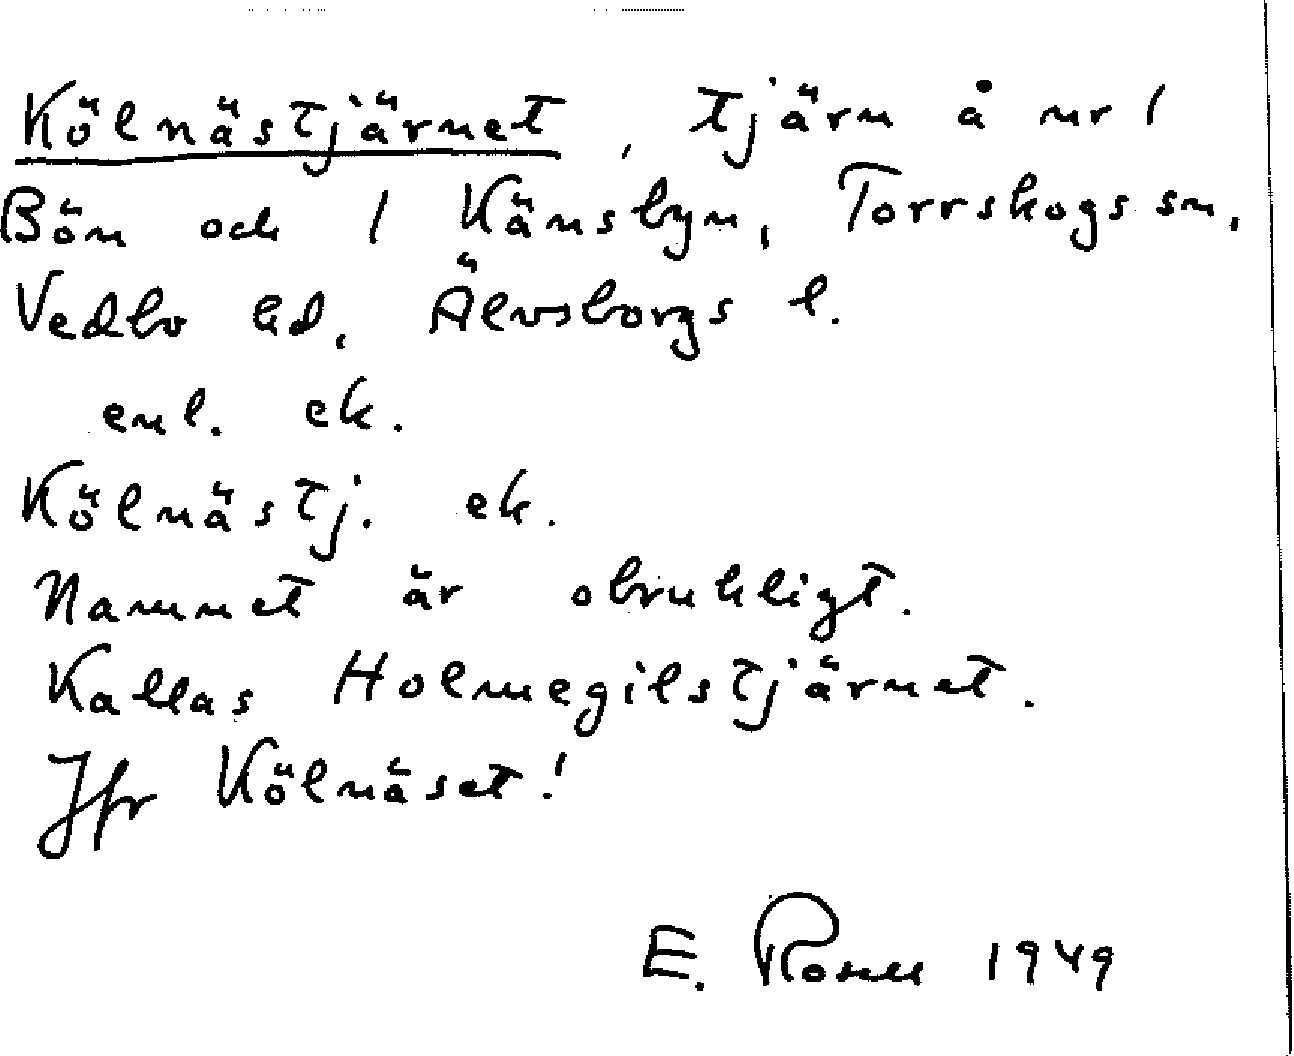 Kölnästjärnet, tjärn å nr 1
Bön och 1 Känsbyn, Torrskogs sn,
Vedbo hd, Älvsborgs l.
enl. ek.
Kölnästj. ek.
Namnet är obrukligt.
Kallas Holmegilstjärnet.
Jfr Kölnäset!
E. Rosen 1949